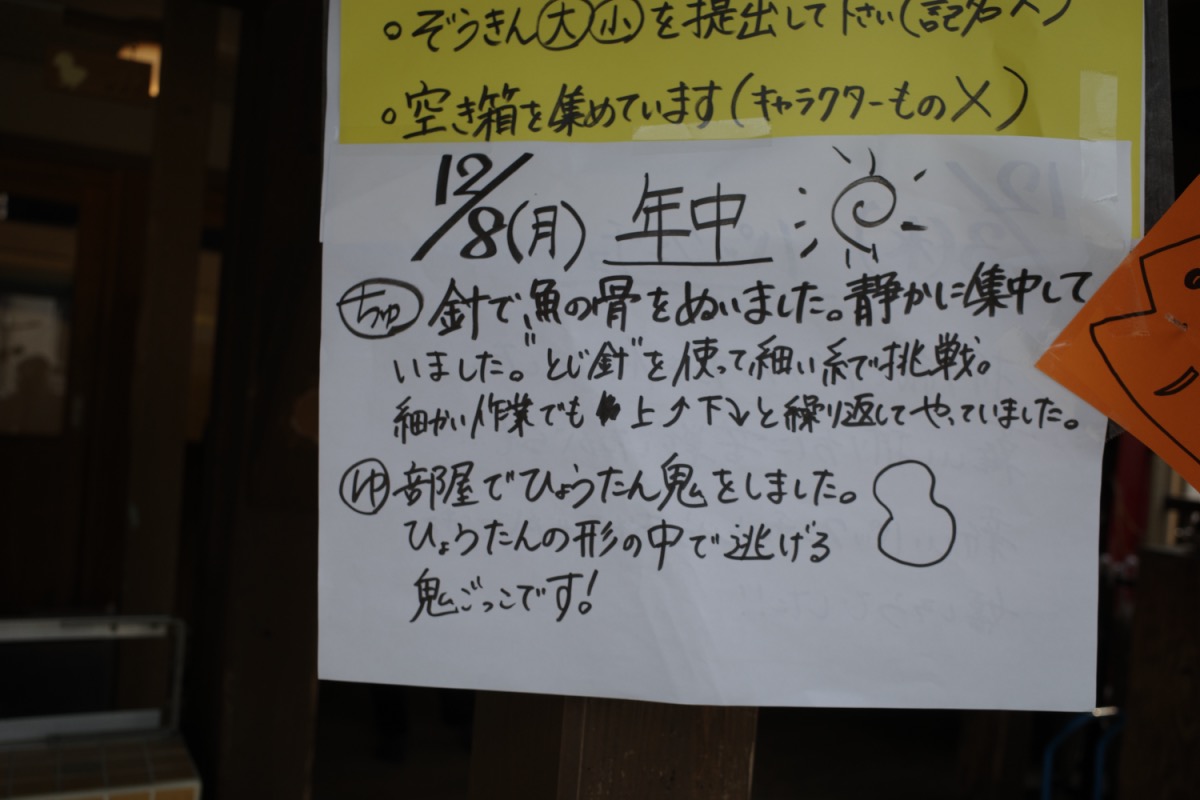 ○ぞうきん大小を提出して下さい(記名×)
○空き箱を集めています(キャラクターもの×)
12/8(月) 年中
ちゅ 針で魚の骨をぬいました。静かに集中して
いました。"とじ針"を使って細い糸で挑戦。
細かい作業でも上↑下↓と繰り返してやっていました。
ゆ 部屋でひょうたん鬼をしました。
ひょうたんの形の中で逃げる
鬼ごっこです!